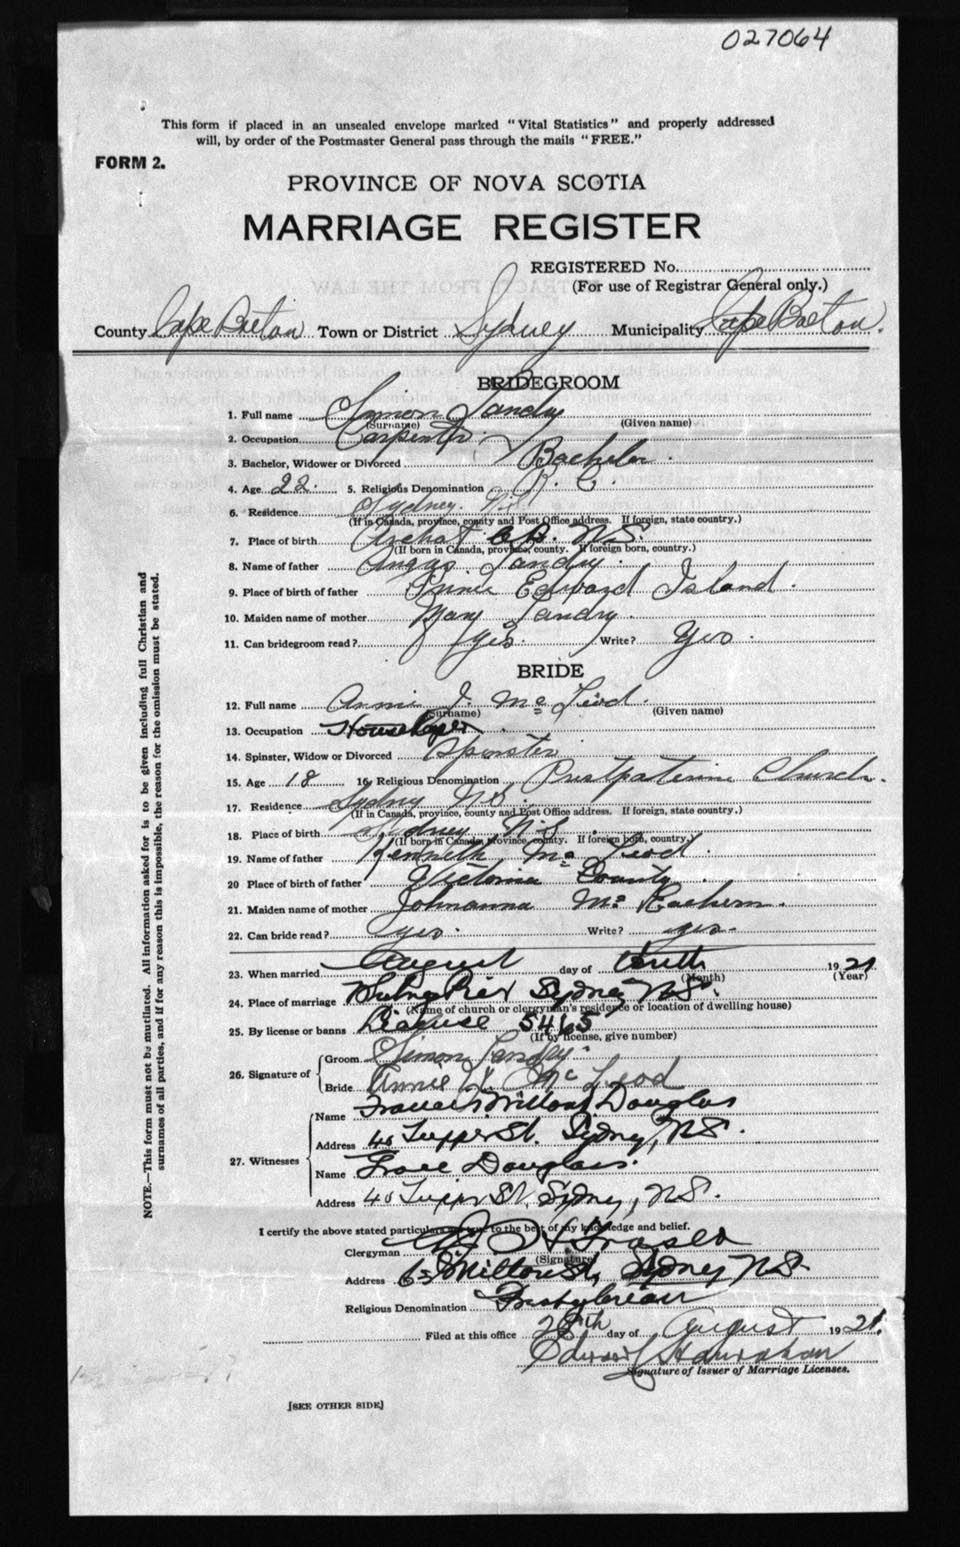 027064
This form if placed in an unsealed envelope marked "Vital Statistics" and properly addressed
will, by order of the Postmaster General pass through the mails "FREE."
FORM 2.
PROVINCE OF NOVA SCOTIA
MARRIAGE REGISTER
REGISTERED No.
(For use of Registrar General only.)
County Cape Breton Town or District Sydney Municipality Cape Breton.
BRIDEGROOM
1. Full name Simon Landry
(Surname) (Given name)
2. Occupation Carpenter
3. Bachelor, Widower or Divorced Bachelor.
4. Age 22. 5. Religious Denomination R. C.
6. Residence Sydney. N.S.
(If in Canada, province, county and Post Office address. If foreign, state country.)
7. Place of birth Arichat C.B. N.S.
(If born in Canada, province, county. If foreign born, country.)
8. Name of father Angus Landry.
9. Place of birth of father Prince Edward Island.
10. Maiden name of mother Mary Landry.
11. Can bridegroom read? Yes. Write? Yes.
BRIDE
12. Full name Annie J. McLeod.
(Surname) (Given name)
13. Occupation
14. Spinster, Widow or Divorced Spinster
15. Age 18 16. Religious Denomination Church.
17. Residence Sydney N.S.
(If in Canada, province, county and Post Office address. If foreign, state country.)
18. Place of birth Sydney N.S.
(If born in Canada, province, county. If foreign born, country)
19. Name of father Kenneth McLeod.
20 Place of birth of father Victoria County.
21. Maiden name of mother Johnanna McEachern.
22. Can bride read? yes. Write? yes.
23. When married August day of 1921
(Month) (Year)
24. Place of marriage Whitney Pier Sydney N.S.
(Name of church or clergyman's residence or location of dwelling house)
25. By license or banns License 5465
(If by license, give number)
26. Signature of Groom Simon Landry.
Bride Annie McLeod
27. Witnesses Name Francis Douglas
Address 40 Tupper St. Sydney, N.S.
Name Grace Douglas.
Address 40 Tupper St, Sydney, N.S.
I certify the above stated particulars are true to the best of my knowledge and belief.
Clergyman Fraser
(Signature)
Address Milton St, Sydney N.S.
Religious Denomination Presbyterian
Filed at this office 28th day of August 1921.
Edward
Signature of Issuer of Marriage Licenses.
[SEE OTHER SIDE]
NOTE.—This form must not be mutilated. All information asked for is to be given including full Christian and
surnames of all parties, and if for any reason this is impossible, the reason for the omission must be stated.